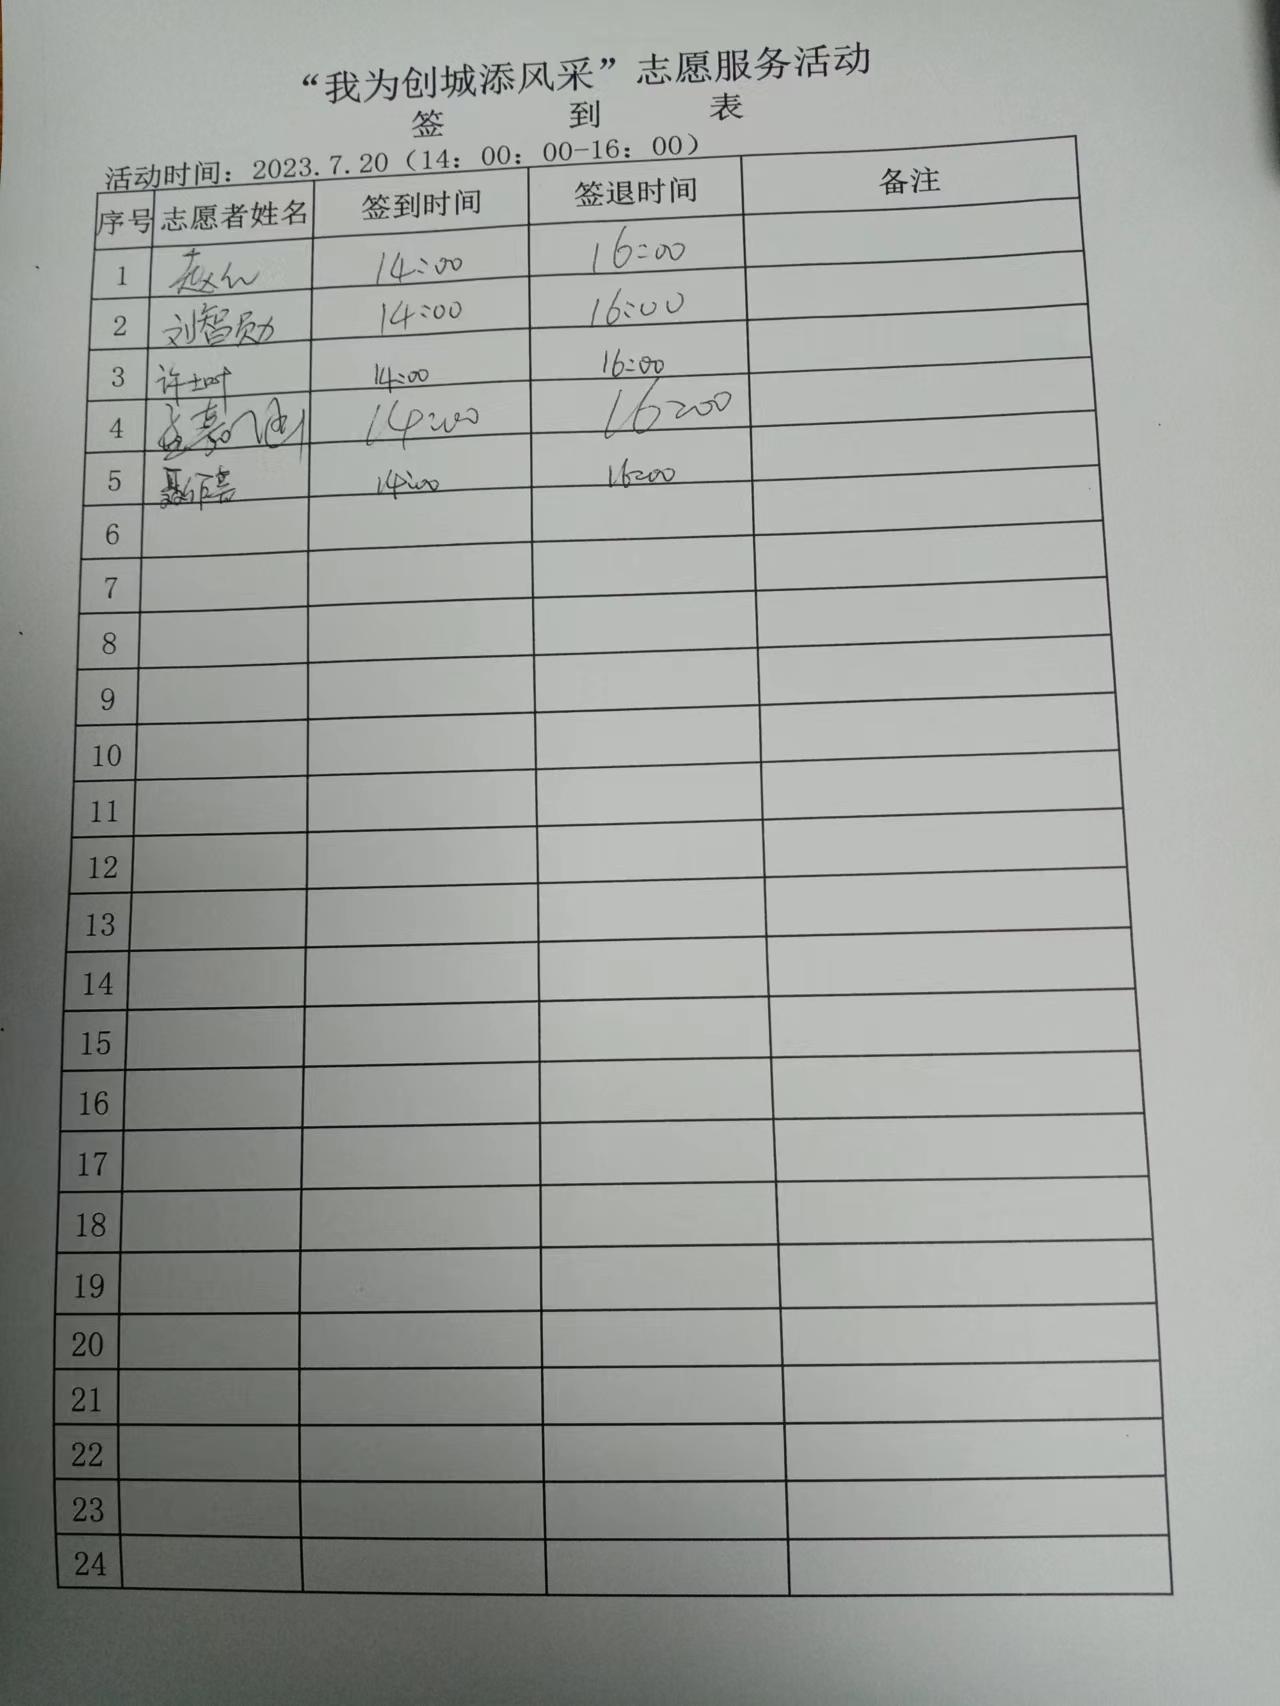 “我为创城添风采”志愿服务活动
签 到 表
活动时间：2023.7.20（14：00：00-16：00）
序号 志愿者姓名 签到时间 签退时间 备注
1 14:00 16:00
2 刘智勋 14:00 16:00
3 14:00 16:00
4 14:00 16:00
5 14:00 16:00
6
7
8
9
10
11
12
13
14
15
16
17
18
19
20
21
22
23
24